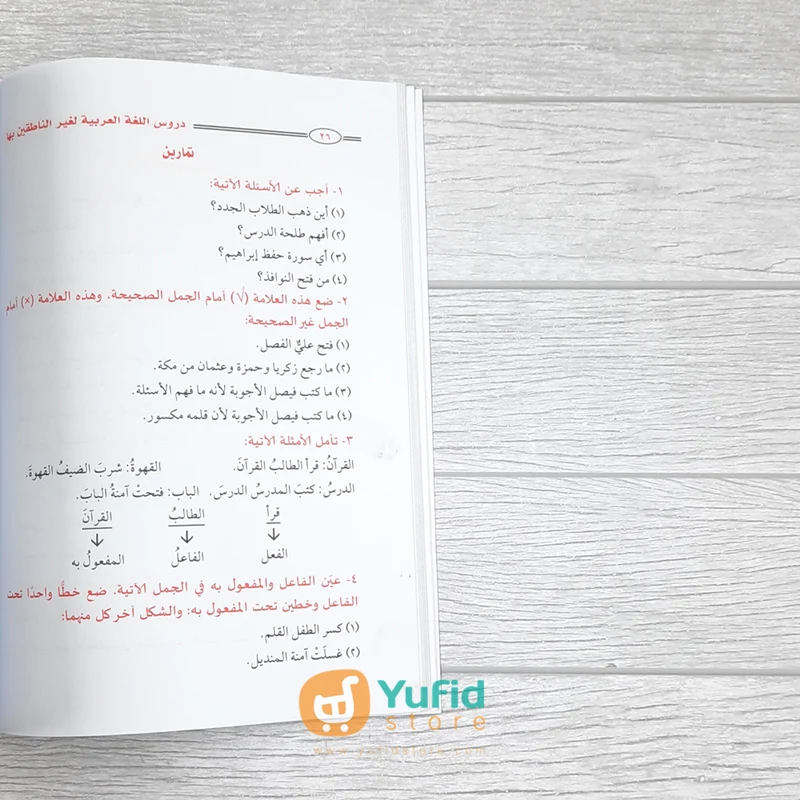 دروس اللغة العربية لغير الناطقين بها
٢٦
تمارين
١- أجب عن الأسئلة الآتية:
(١) أين ذهب الطلاب الجدد؟
(٢) أفهم طلحة الدرس؟
(٣) أي سورة حفظ إبراهيم؟
(٤) من فتح النوافذ؟
٢- ضع هذه العلامة (√) أمام الجمل الصحيحة، وهذه العلامة (×) أمام
الجمل غير الصحيحة:
(١) فتح عليٌّ الفصل.
(٢) ما رجع زكريا وحمزة وعثمان من مكة.
(٣) ما كتب فيصل الأجوبة لأنه ما فهم الأسئلة.
(٤) ما كتب فيصل الأجوبة لأن قلمه مكسور.
٣- تأمل الأمثلة الآتية:
القرآنُ: قرأ الطالبُ القرآنَ. القهوةُ: شربَ الضيفُ القهوةَ.
الدرسُ: كتبَ المدرسُ الدرسَ. الباب: فتحتْ آمنةُ البابَ.
قرأ الطالبُ القرآنَ
الفعل الفاعلُ المفعولُ به
٤- عيّن الفاعل والمفعول به في الجمل الآتية. ضع خطًّا واحدًا تحت
الفاعل وخطين تحت المفعول به: والشكل آخر كل منهما:
(١) كسر الطفل القلم.
(٢) غسلَتْ آمنة المنديل.
Yufid
store
www.yufidstore.com